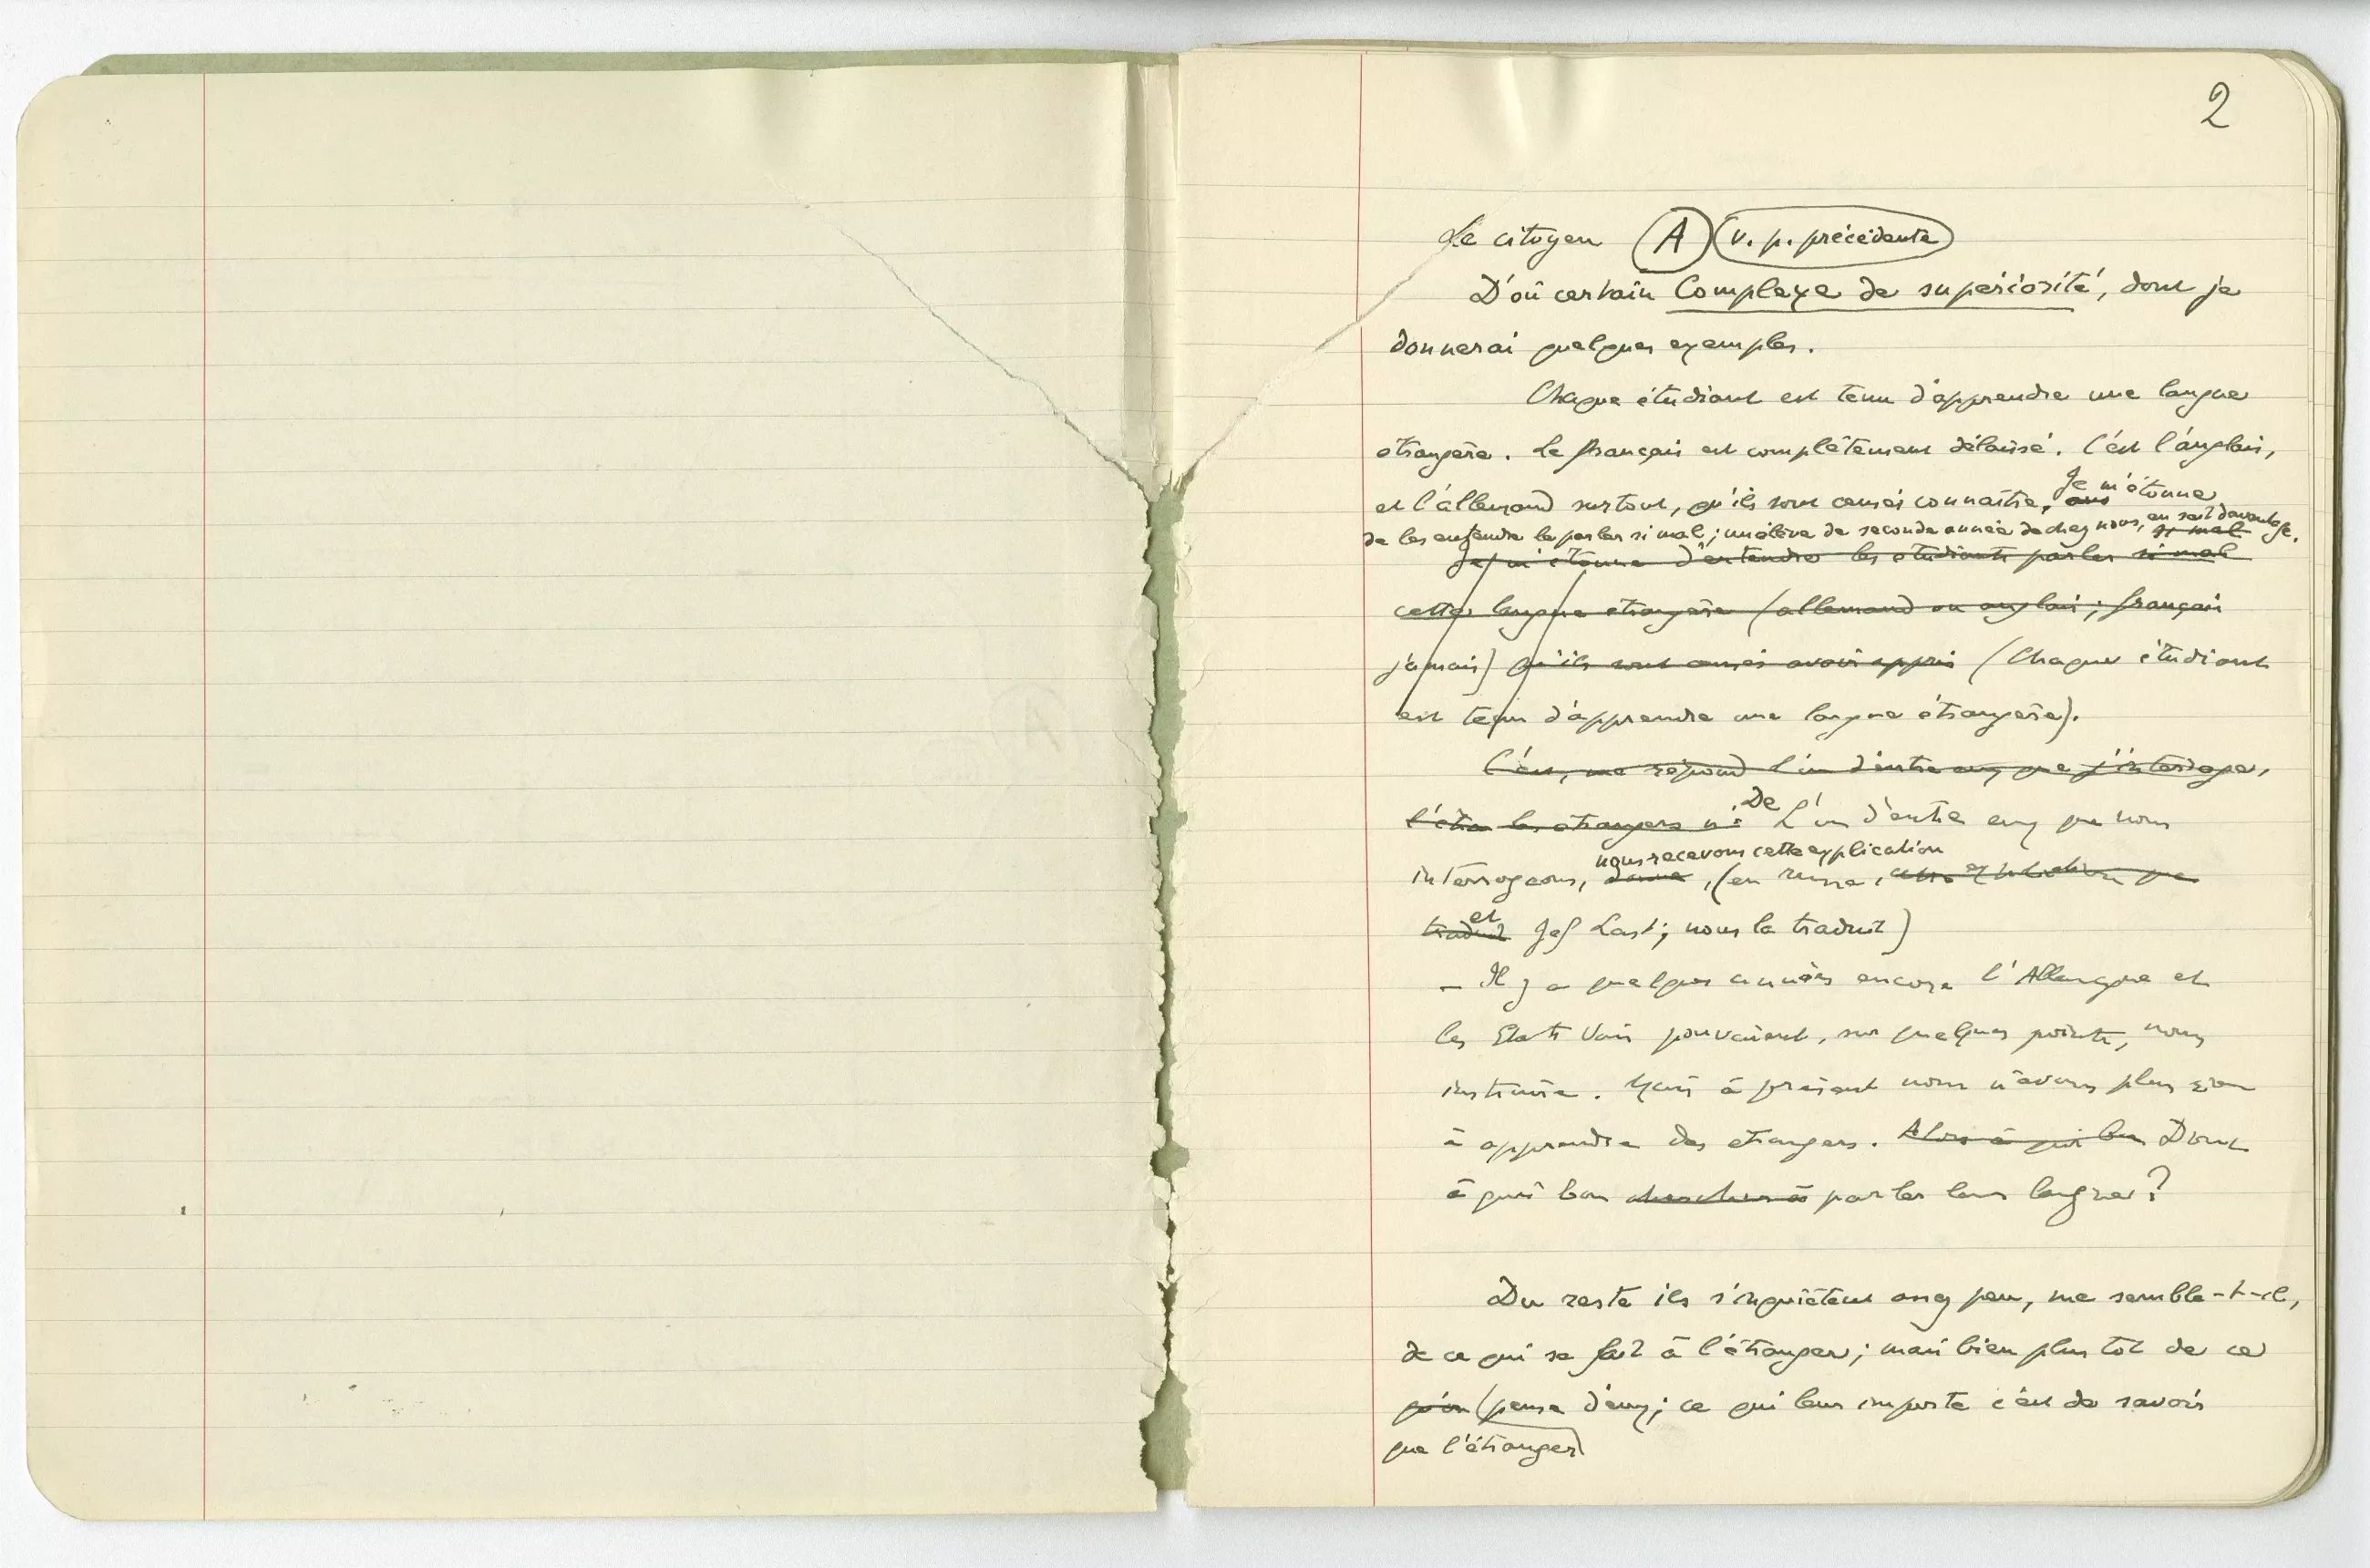 2
Le citoyen A v. p. précédente
D'où certain Complexe de supériorité, dont je
donnerai quelques exemples.
Chaque étudiant est tenu d'apprendre une langue
étrangère. Le français est complètement délaissé. C'est l'anglais,
et l'allemand surtout, qu'ils sont censés connaître. Je m'étonne
de les entendre le parler si mal ; un élève de seconde année de chez nous, en sait davantage.
si mal
Je m'étonne d'entendre les étudiants parler si mal
cette langue étrangère (allemand ou anglais ; français
jamais) qu'ils sont censés avoir appris (Chaque étudiant
est tenu d'apprendre une langue étrangère).
C'est, me répond l'un d'entre eux que j'interroge,
De
les étrangers L'un d'entre eux que nous
nous recevons cette explication
interrogeons, donne, (en russe, cette explication que
et
traduit Jef Last ; nous la traduit)
– Il y a quelques années encore l'Allemagne et
les Etats Unis pouvaient, sur quelques points, nous
instruire. Mais à présent nous n'avons plus rien
à apprendre des étrangers. Alors à quoi bon Donc
à quoi bon chercher à parler leur langue ?
Du reste ils s'inquiètent assez peu, me semble-t-il,
de ce qui se fait à l'étranger ; mais bien plus tôt de ce
qu'on pense d'eux ; ce qui leur importe c'est de savoir
que l'étranger